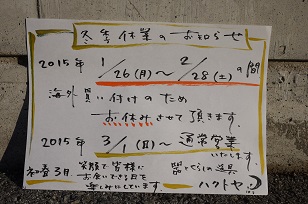 冬季休業のお知らせ
2015年 1/26(月)～2/28(土)の間
海外買い付けのため
お休みさせて頂きます。
2015年 3/1(日)～通常営業
いたします。
初春3月 笑顔で皆様に
お会いできる日を
楽しみにしています。
器とくらしの道具
ハクトヤ